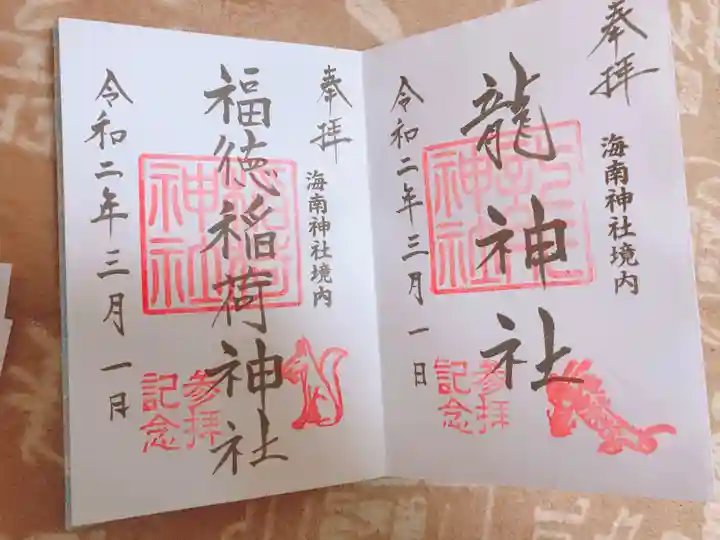 奉拝
海南神社境内
龍神社
参拝
記念
令和二年三月一日
奉拝
海南神社境内
福徳稲荷神社
神社
参拝
記念
令和二年三月一日